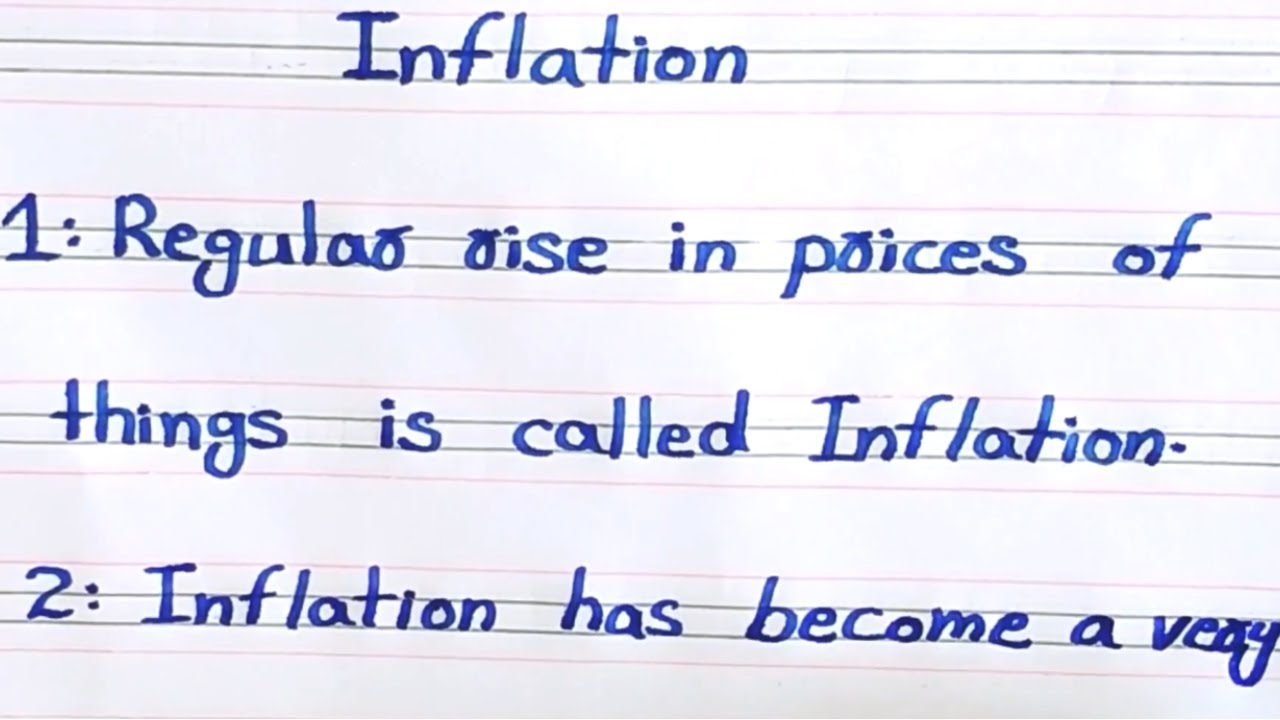 Inflation
1: Regular rise in prices of
things is called Inflation.
2: Inflation has become a very